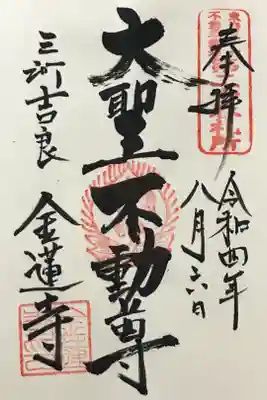 奉拝
令和四年
八月六日
大聖不動尊
三河吉良
金蓮寺